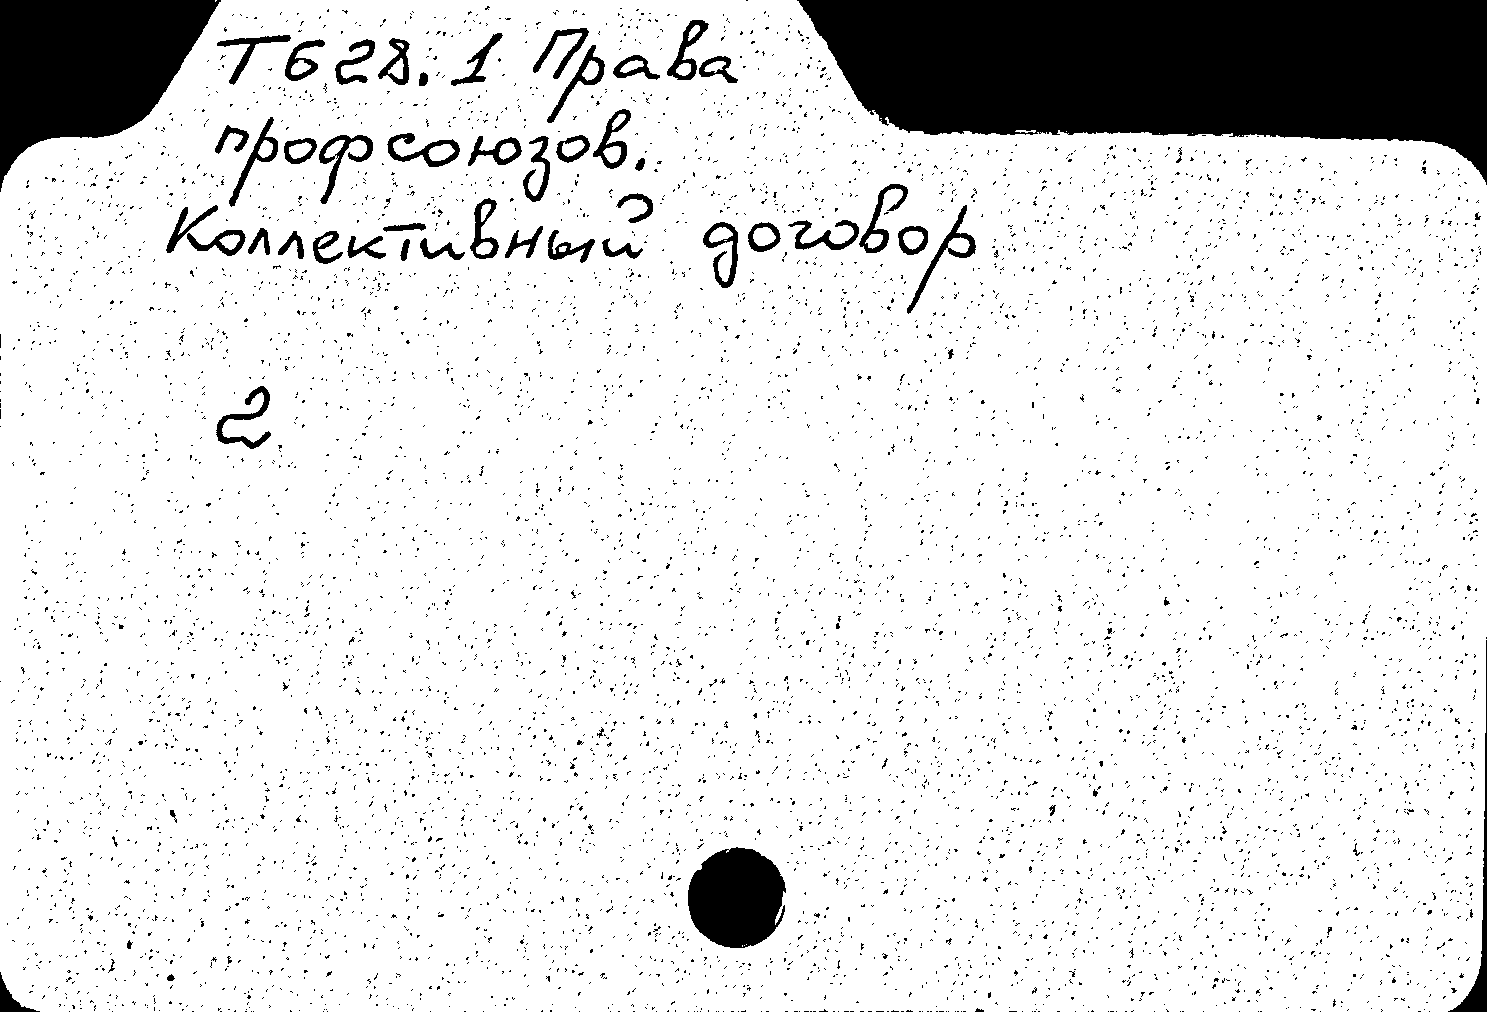 Т628.1 Права
профсоюзов.
Коллективный договор
2